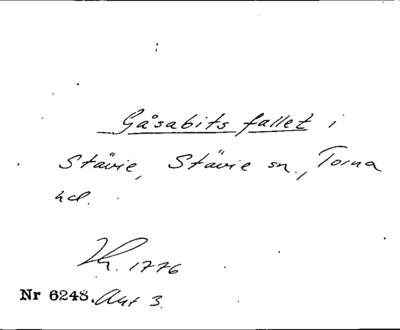 Gåsabits fallet i
Stävie, Stävie sn., Torna
hd.
1776
Nr 6248. Akt 3.